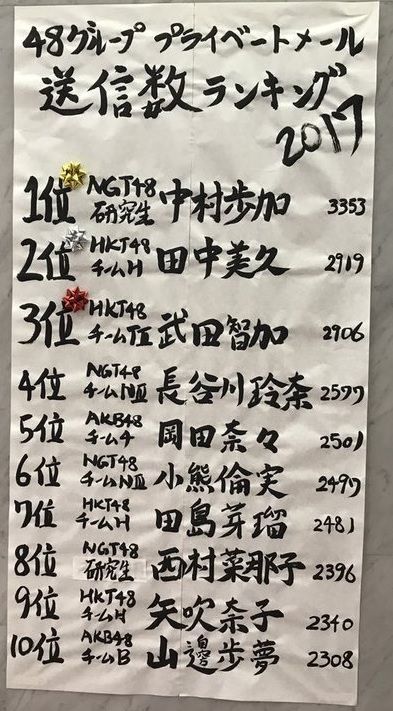 48グループ プライベートメール
送信数ランキング
2017
1位 NGT48 研究生 中村歩加 3353
2位 HKT48 チームH 田中美久 2919
3位 HKT48 チームTⅡ 武田智加 2906
4位 NGT48 チームNⅢ 長谷川玲奈 2577
5位 AKB48 チーム4 岡田奈々 2501
6位 NGT48 チームNⅢ 小熊倫実 2497
7位 HKT48 チームH 田島芽瑠 2481
8位 NGT48 研究生 西村菜那子 2396
9位 HKT48 チームH 矢吹奈子 2340
10位 AKB48 チームB 山邊歩夢 2308